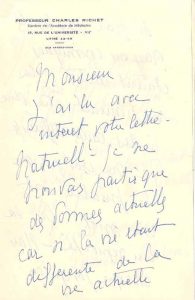 PROFESSEUR CHARLES RICHET
Membre de l'Académie de Médecine
15, RUE DE L'UNIVERSITÉ - VIIe
Monsieur
J'ai lu avec
intérêt votre lettre.
Naturell! Je ne
pouvais parler que
des formes actuelles
car si la vie était
différente de la
vie actuelle